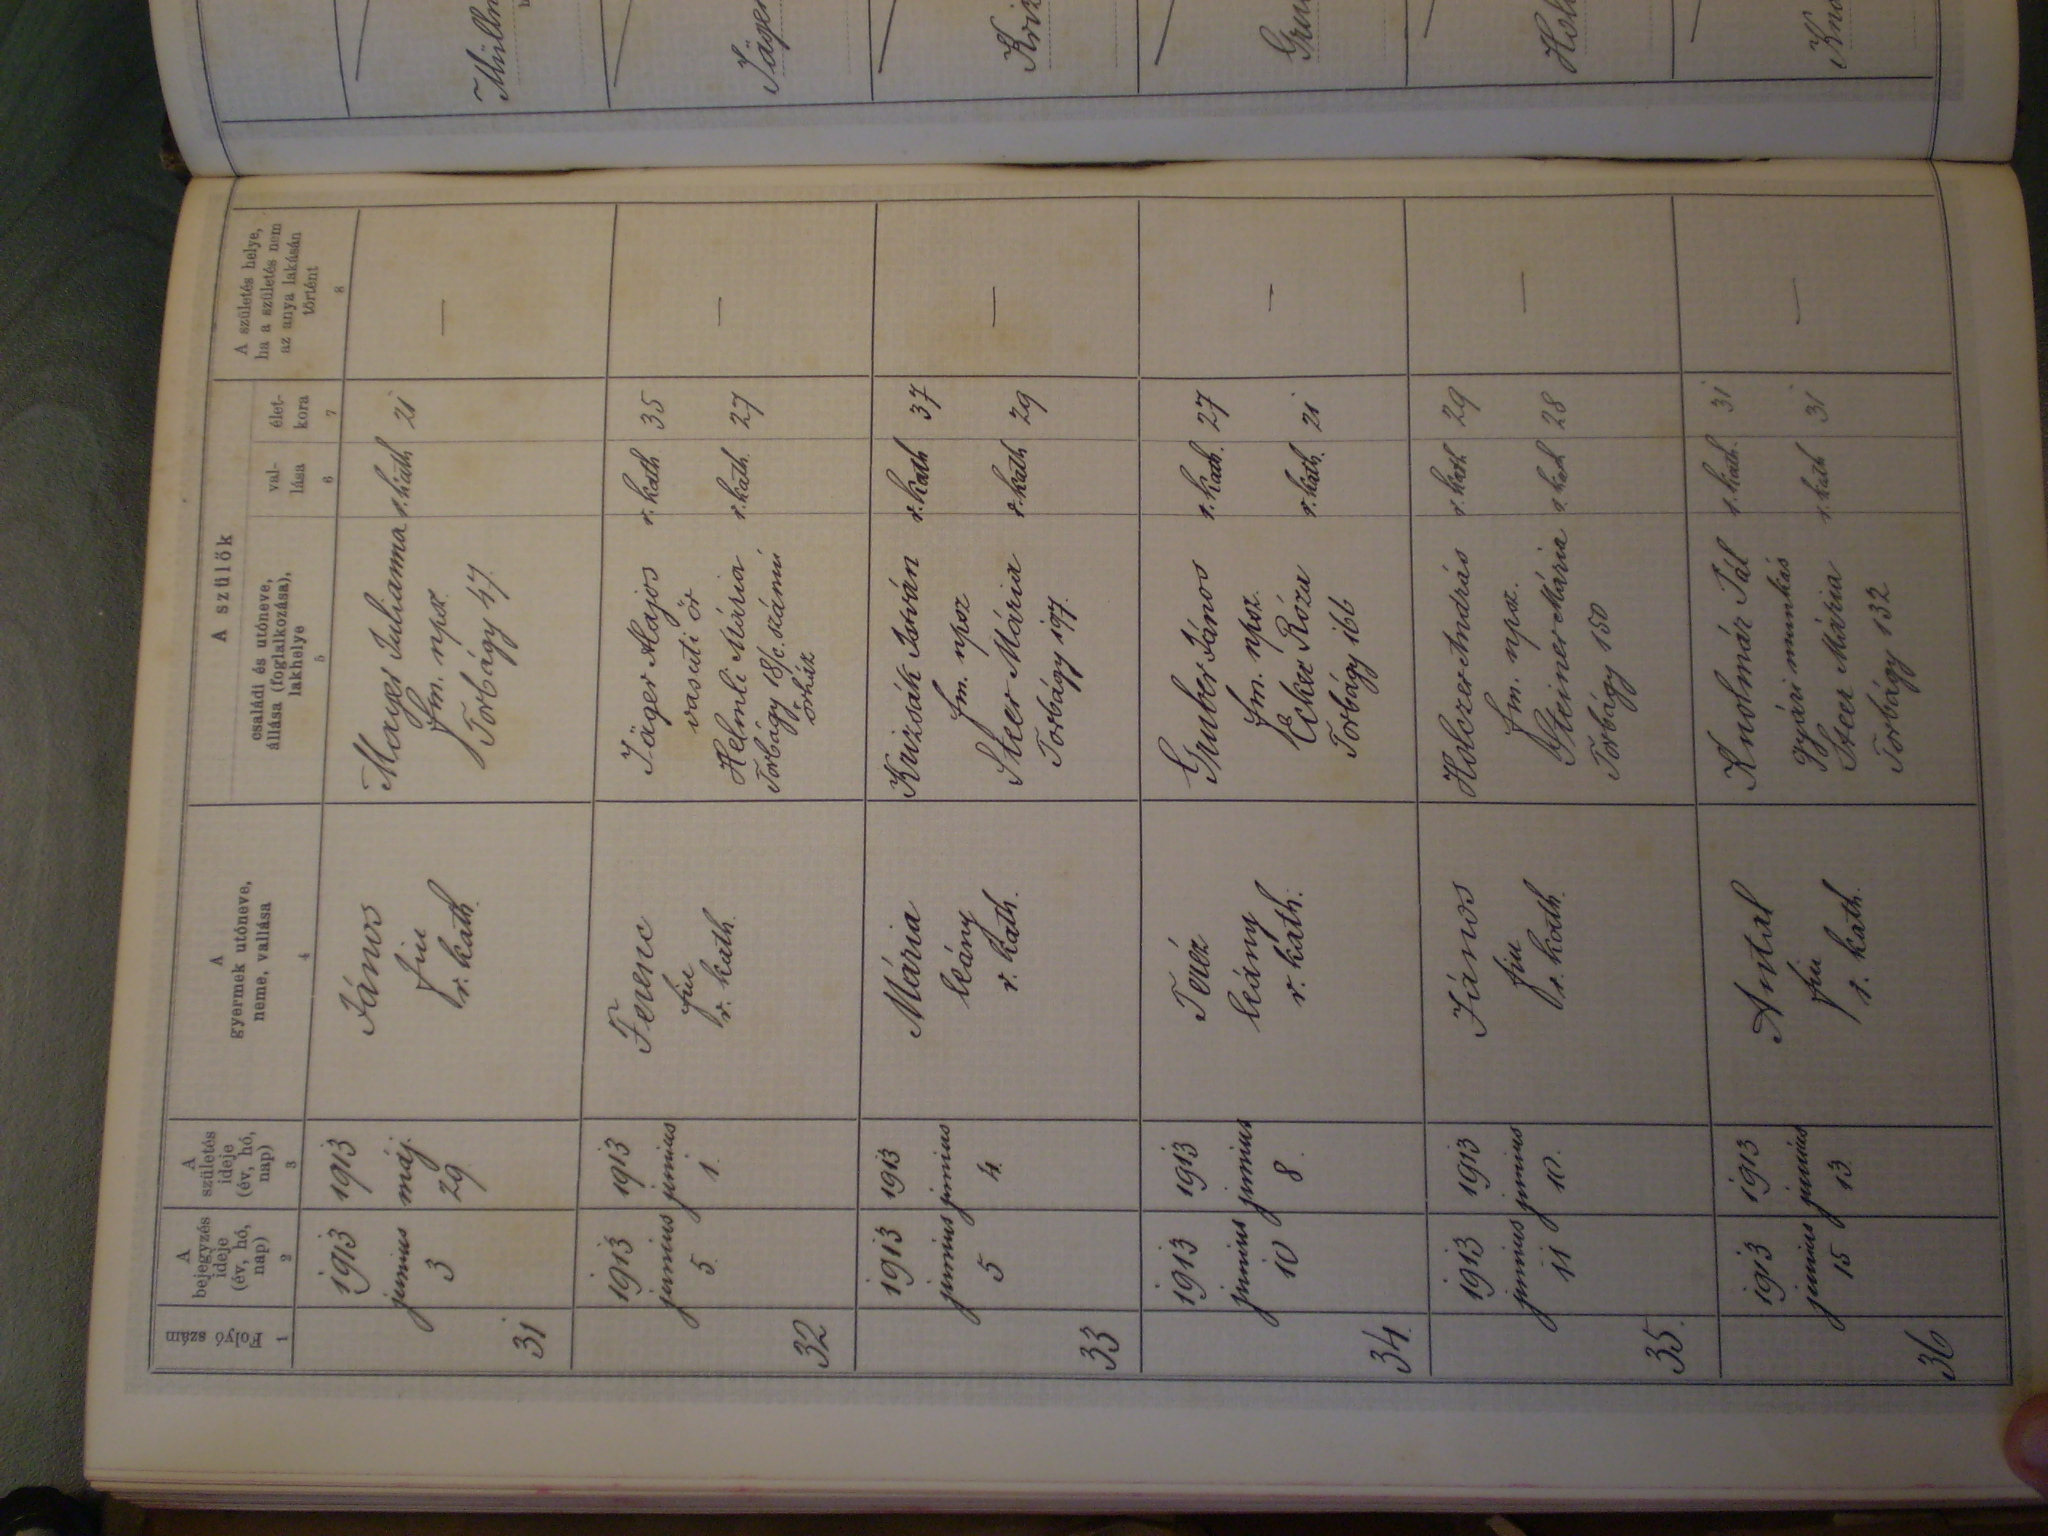 A szülők
A születés helye,
ha a születés nem
az anya lakásán
történt
Folyó szám
A
bejegyzés
ideje
(év, hó,
nap)
A
születés
ideje
(év, hó,
nap)
A
gyermek utóneve,
neme, vallása
családi és utóneve,
állása (foglalkozása),
lakhelye
val-
lása
élet-
kora
1
2
3
4
5
6
7
8
31
1913
junius
3
1913
máj.
29
János
fiu
r. kath.
Mayer Julianna r. kath 21
fm. npsz.
Torbágy 47.
—
32
1913
junius
5.
1913
junius
1.
Ferenc
fiu
r. kath.
Jäger Alajos r. kath. 35
vasuti őr
Helmli Mária r. kath. 27
Torbágy 18/c. számú
őrház
—
33
1913
junius
5
1913
junius
4.
Mária
leány
r. kath.
Krizsák István r. kath 37
fm. npsz
Steer Mária r. kath 29
Torbágy 197.
—
34.
1913
junius
10
1913
junius
8.
Teréz
leány
r. kath.
Gruber János r. kath. 27
fm. npsz.
Ecker Róza r. kath. 21
Torbágy 166
—
35.
1913
junius
11
1913
junius
10.
János
fiu
r. kath.
Holczer András r. kath 29
fm. npsz.
Steiner Mária r. kath 28
Torbágy 150
—
36
1913
junius
15
1913
junius
13
Antal
fiu
r. kath.
Knolmár Pál r. kath. 31
gyári munkás
Steer Mária r. kath 31
Torbágy 132
—
Jäger
Kriz
Gru
Hol
Kno